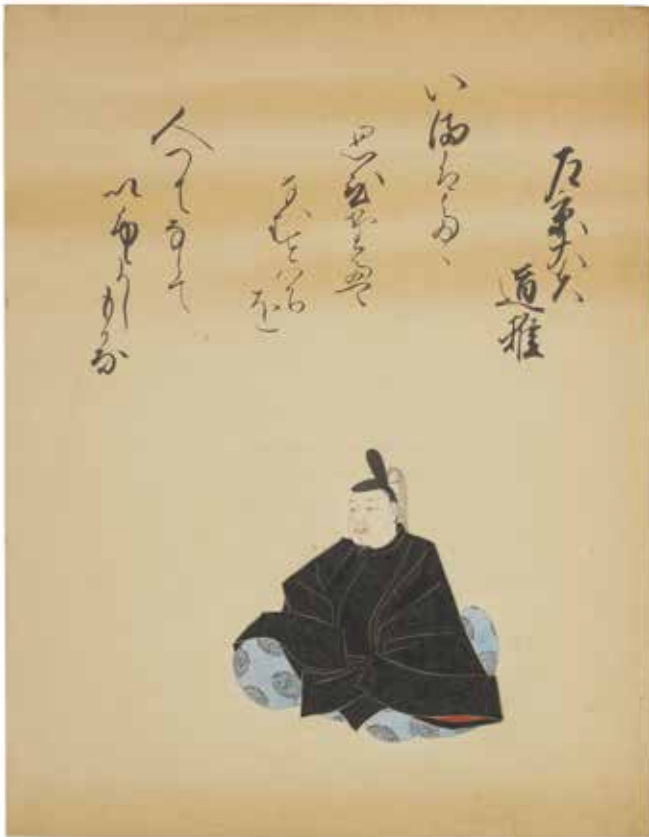 左京大夫
道雅
いまはたゝ
思ひたえ
なむとはかり
を
人つてならて
いふよしもかな